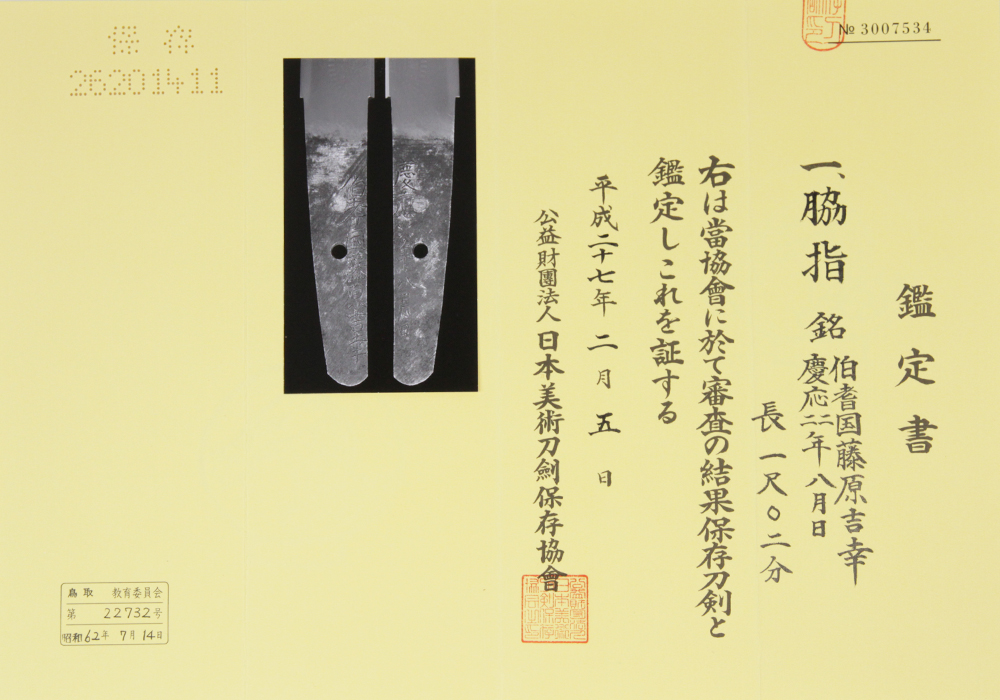 № 3007534
鑑定書
一、脇指 銘 伯耆国藤原吉幸
慶応二二年八月日
長一尺〇二分
右は當協會に於て審査の結果保存刀剣と
鑑定しこれを証する
平成二十七年二月五日
公益財團法人日本美術刀劍保存協會
保存
26201411
鳥取 教育委員会
第 22732号
昭和62年 7月14日